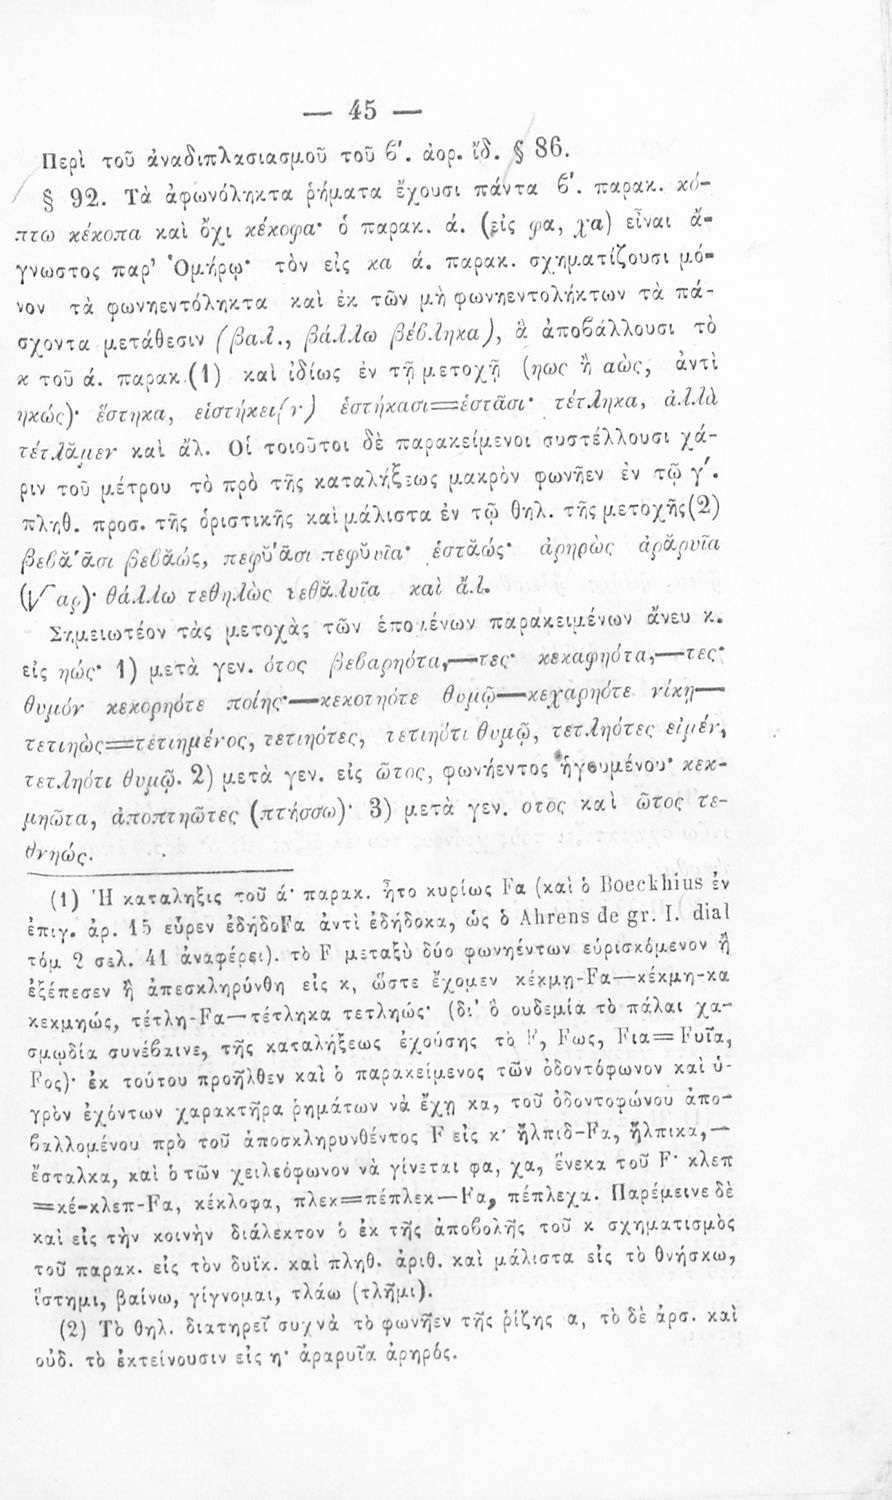 — 45 —
Περὶ τοῦ ἀναδιπλασιασμοῦ τοῦ ϐ′. ἀορ. ἴδ. § 86.
§ 92. Τὰ ἀφωνόληκτα ῥήματα ἔχουσι πάντα ϐ′. παρακ. κό-
πτω κέκοπα καὶ ὄχι κέκοφα· ὁ παρακ. ά. (εἰς φα, χα) εἶναι ἄ-
γνωστος παρ’ Ὁμήρῳ· τὸν εἰς κα ά. παρακ. σχηματίζουσι μό-
νον τὰ φωνηεντόληκτα καὶ ἐκ τῶν μὴ φωνηεντολήκτων τὰ πά-
σχοντα μετάθεσιν (βαλ., βάλλω βέβληκα), ἃ ἀποϐάλλουσι τὸ
κ τοῦ ά. παρακ.(1) καὶ ἰδίως ἐν τῇ μετοχῇ (ηως ἢ αὼς, ἀντὶ
ηκώς)· ἕστηκα, εἱστήκει(ν) ἑστήκασι=ἑστᾶσι· τέτληκα, ἀλλὰ
τέτλᾰμεν καὶ ἄλ. Οἱ τοιοῦτοι δὲ παρακείμενοι συστέλλουσι χά-
ριν τοῦ μέτρου τὸ πρὸ τῆς καταλήξεως μακρὸν φωνῆεν ἐν τῷ γ′.
πληθ. προσ. τῆς ὁριστικῆς καὶ μάλιστα ἐν τῷ θηλ. τῆς μετοχῆς(2)
βεϐᾰ́ᾱσι βεϐᾰώς, πεφῠ́ᾱσι πεφῠυῖα· ἑστᾰώς· ἀρηρὼς ἀρᾰρυῖα
(√αρ)· θάλλω τεθηλὼς τεθᾰλυῖα καὶ ἄλ.
Σημειωτέον τὰς μετοχὰς τῶν ἑπομένων παρακειμένων ἄνευ κ.
εἰς ηώς· 1) μετὰ γεν. ότος βεϐαρηότα,—τες· κεκαφηότα,—τες·
θυμόν κεκορηότε ποίης·—κεκοτηότε θυμῷ—κεχαρηότε νίκῃ—
τετιηὼς=τετιημένος, τετιηότες, τετιηότι θυμῷ, τετληότες εἰμέν,
τετληότι θυμῷ. 2) μετὰ γεν. εἰς ῶτος, φωνήεντος ἡγουμένου· κεκ-
μηῶτα, ἀποπτηῶτες (πτήσσω)· 3) μετὰ γεν. οτος καὶ ῶτος τε-
θνηώς.
(1) Ἡ καταληξις τοῦ ά· παρακ. ἦτο κυρίως Fα (καὶ ὁ Boeckhius ἐν
ἐπιγ. ἀρ. 15 εὗρεν ἐδήδοFα ἀντὶ ἐδήδοκα, ὡς ὁ Ahrens de gr. I. dial
τόμ 2 σελ. 41 ἀναφέρει). τὸ F μεταξὺ δύο φωνηέντων εὑρισκόμενον ἢ
ἐξέπεσεν ἢ ἀπεσκληρύνθη εἰς κ, ὥστε ἔχομεν κέκμη-Fα—κέκμη-κα
κεκμηώς, τέτλη-Fα—τέτληκα τετληώς· (δι’ ὃ ουδεμία τὸ πάλαι χα-
σμῳδία συνέϐαινε, τῆς καταλήξεως ἐχούσης τὸ F, Fως, Fια=Fυῖα,
Fος)· ἐκ τούτου προῆλθεν καὶ ὁ παρακείμενος τῶν ὀδοντόφωνον καὶ ὑ-
γρὸν ἐχόντων χαρακτῆρα ῥημάτων νὰ ἔχῃ κα, τοῦ ὀδοντοφώνου ἀπο-
ϐαλλομένου πρὸ τοῦ ἀποσκληρυνθέντος F εἰς κ· ἤλπιδ-Fα, ἤλπικα,—
ἔσταλκα, καὶ ὁ τῶν χειλεόφωνον νὰ γίνεται φα, χα, ἕνεκα τοῦ F· κλεπ
=κέ-κλεπ-Fα, κέκλοφα, πλεκ=πέπλεκ—Fα, πέπλεχα. Παρέμεινε δὲ
καὶ εἰς τὴν κοινὴν διάλεκτον ὁ ἐκ τῆς ἀποϐολῆς τοῦ κ σχηματισμὸς
τοῦ παρακ. εἰς τὸν δυϊκ. καὶ πληθ. ἀριθ. καὶ μάλιστα εἰς τὸ θνήσκω,
ἵστημι, βαίνω, γίγνομαι, τλάω (τλῆμι).
(2) Τὸ θηλ. διατηρεῖ συχνὰ τὸ φωνῆεν τῆς ῥίζης α, τὸ δὲ ἀρσ. καὶ
οὐδ. τὸ ἐκτείνουσιν εἰς η· ἀραρυῖα ἀρηρός.